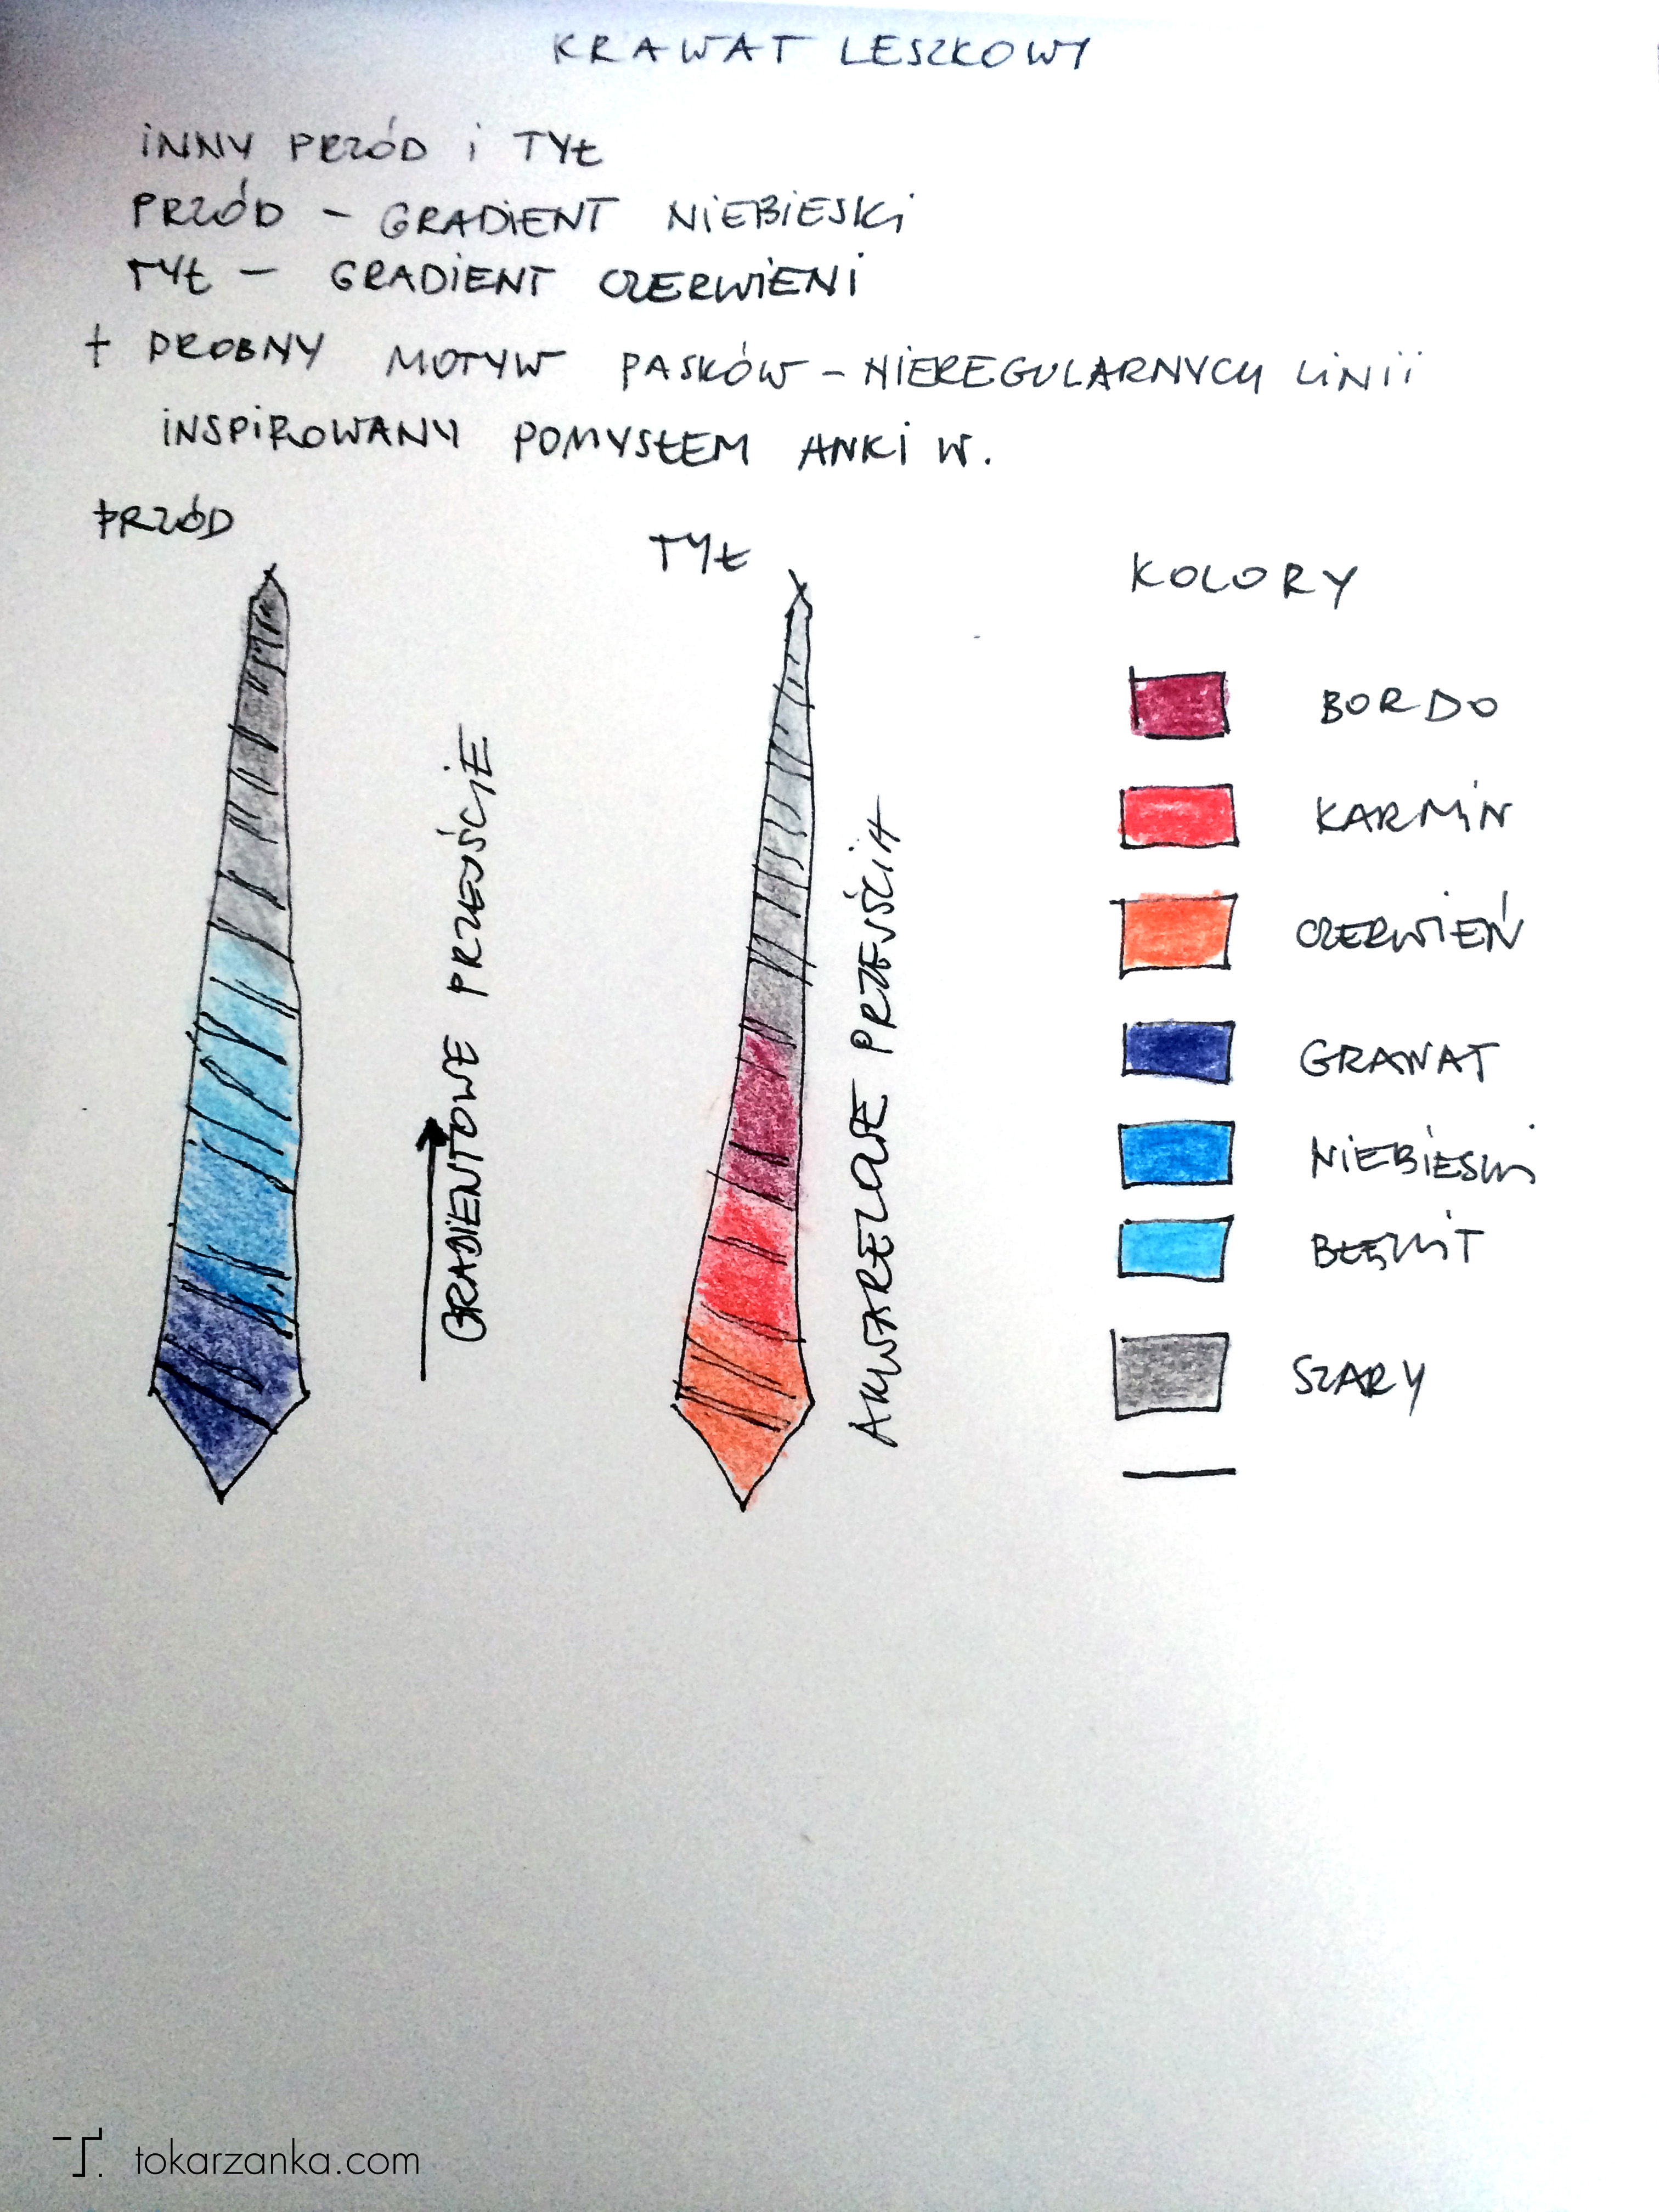 KRAWAT LESZKOWY
INNY PRZÓD I TYŁ
PRZÓD - GRADIENT NIEBIESKI
TYŁ - GRADIENT CZERWIENI
+ DROBNY MOTYW PASKÓW - NIEREGULARNYCH LINII
INSPIROWANY POMYSŁEM ANKI W.
PRZÓD
TYŁ
GRADIENTOWE PRZEJŚCIE
AKWARELOWE PRZEJŚCIA
KOLORY
BORDO
KARMIN
CZERWIEŃ
GRANAT
NIEBIESKI
BŁĘKIT
SZARY
T. tokarzanka.com